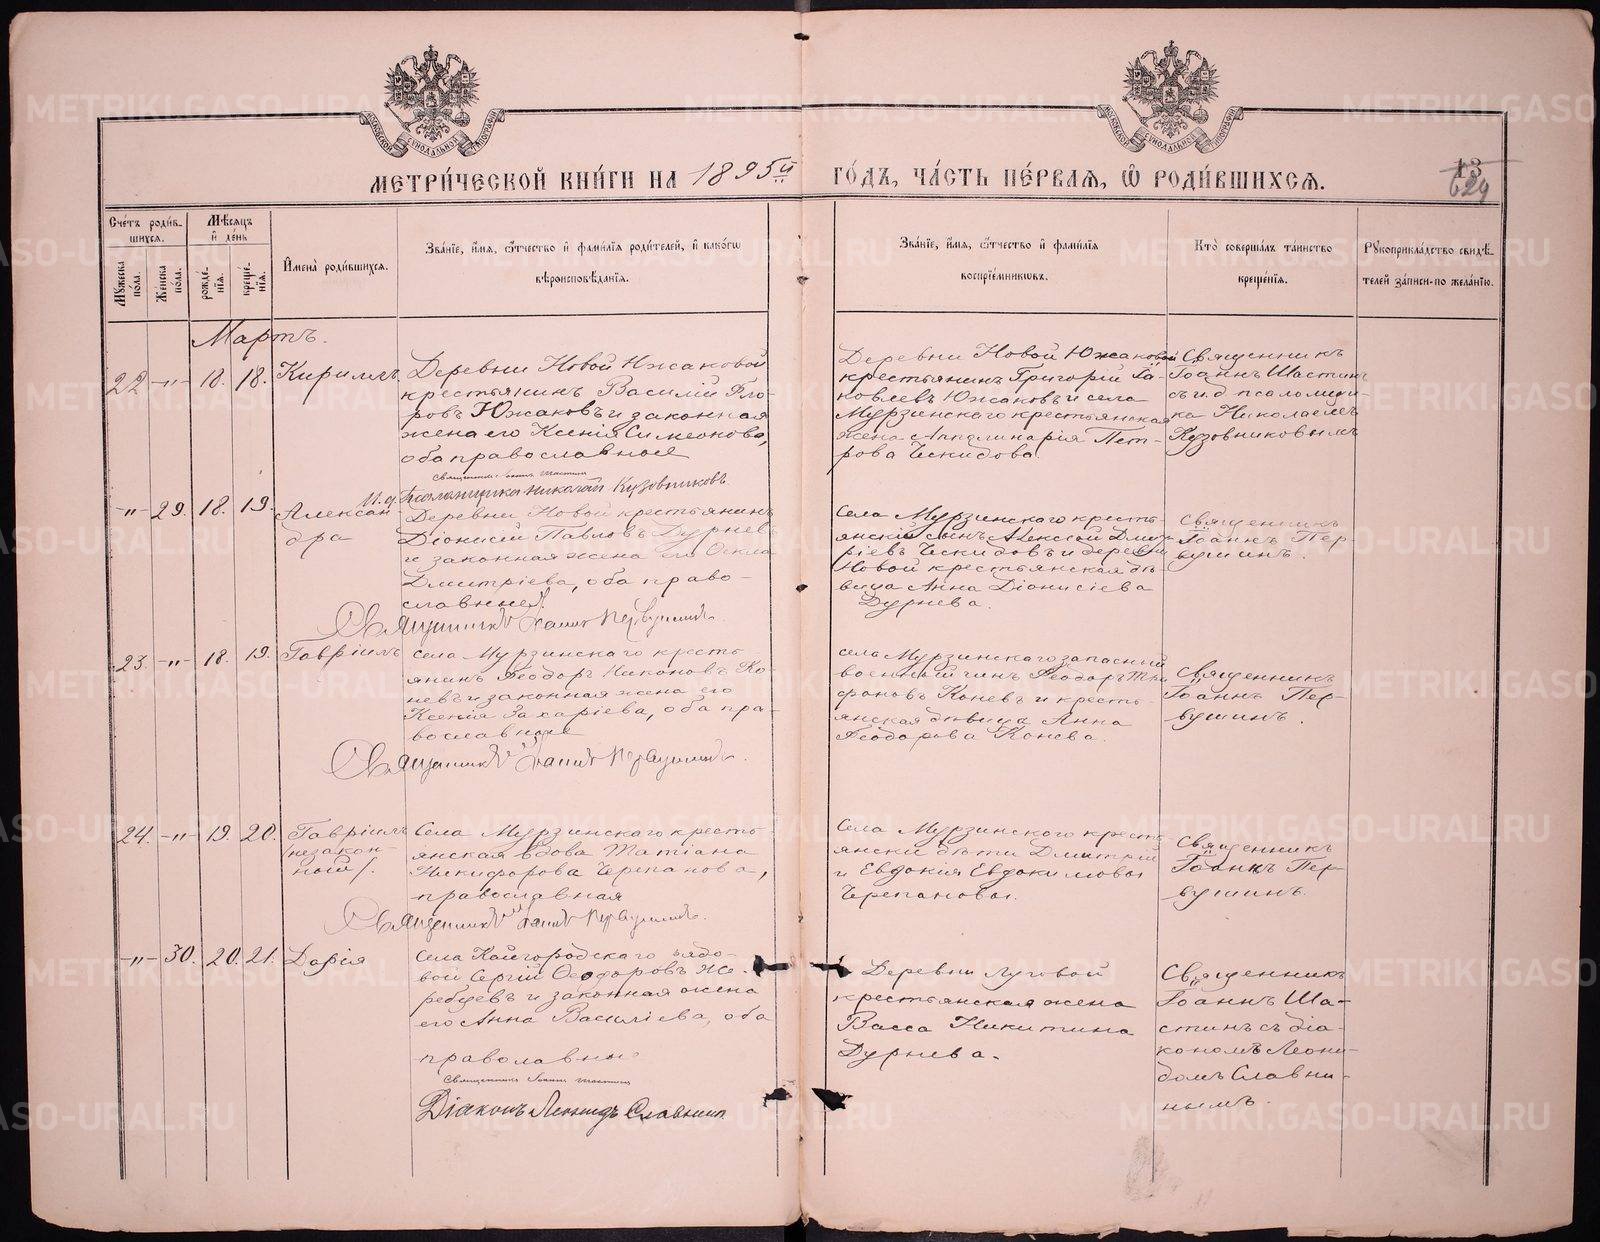 МЕТРИ́ЧЕСКОЙ КНИ́ГИ НА 1895й ГО́ДЪ, ЧА́СТЬ ПЕ́РВАЯ, Ѡ РОДИ́ВШИХСЯ.
13
629
МОСКОВСКОЙ СѴНОДАЛЬНОЙ ТИПОГРАФІИ
МОСКОВСКОЙ СѴНОДАЛЬНОЙ ТИПОГРАФІИ
Сче́тъ роди́вшихся.
Му́жеска по́ла.
Же́нска по́ла.
Мѣ́сяцъ и́ де́нь
рожде́нїя.
креще́нїя.
И҆мена̀ роди́вшихся.
Зва́нїе, и́мя, ѻ҆́тчество и҆ фами́лїя роди́телей, и҆ како́гѡ
вѣроисповѣ́данїя.
Зва́нїе, и́мя, ѻ҆́тчество и҆ фами́лїя
воспрїе́мникѡвъ.
Кто̀ соверша́лъ та́инство
креще́нїя.
Рꙋкоприкла́дство свидѣ́-
телей за́писи по жела́нїю.
Мартъ.
22 -„- 18. 18. Кириллъ.
Деревни Новой Южаковой
крестьянинъ Василій Фло-
ровъ Южаковъ и законная
жена его Ксенія Симеонова,
оба православные
Священникъ Іоаннъ Шастинъ
И.д. Псаломщика Николай Кузовниковъ
Деревни Новой Южаковой
крестьянинъ Григорій Іа-
ковлевъ Южаковъ и села
Мурзинскаго крестьянская
жена Апполинарія Пет-
рова Ческидова.
Священникъ
Іоаннъ Шастинъ
съ и.д. псаломщи-
ка Николаемъ
Кузовниковымъ
-„- 29. 18. 19. Алексан-
дра
Деревни Новой крестьянинъ
Діонисій Павловъ Дурневъ
и законная жена его
Дмитріева, оба право-
славные.
Священникъ Іоаннъ Первушинъ.
Села Мурзинскаго кресть-
янскій сынъ Алексѣй Дмит-
ріевъ Ческидовъ и деревни
Новой крестьянская дѣ-
вица Анна Діонисіева
Дурнева.
Священникъ
Іоаннъ Пер-
вушинъ.
23. -„- 18. 19. Гавріилъ
Села Мурзинскаго кресть-
янинъ Ѳеодоръ Никоновъ Ко-
невъ и законная жена его
Ксенія Захаріева, оба пра-
вославные
Священникъ Іоаннъ Первушинъ.
села Мурзинскаго запасный
военный чинъ Ѳеодоръ Три-
фоновъ Коневъ и кресть-
янская дѣвица Анна
Ѳеодорова Конева.
Священникъ
Іоаннъ Пер-
вушинъ.
24. -„- 19. 20. Гавріилъ
/незакон-
ный/.
Села Мурзинскаго кресть-
янская вдова Татіана
Никифорова Черепанова,
православная
Священникъ Іоаннъ Первушинъ.
Села Мурзинскаго кресть-
янски дѣти Дмитрій
и Евдокия Евдокимовы
Черепановы.
Священникъ
Іоаннъ Пер-
вушинъ.
-„- 30. 20. 21. Дарія
Села Кайгородскаго рядо-
вой Сергій Ѳеодоровъ Же-
ребцевъ и законная жена
его Анна Василіева, оба
праволавны
Священникъ Іоаннъ Шастинъ
Діаконъ Леонидъ Славнинъ
Деревни Луговой
крестьянская жена
Васса Никитина
Дурнева.
Священникъ
Іоаннъ Ша-
стинъ съ діа-
кономъ Леони-
домъ Славни-
нымъ.
METRIKI.GASO-URAL.RU